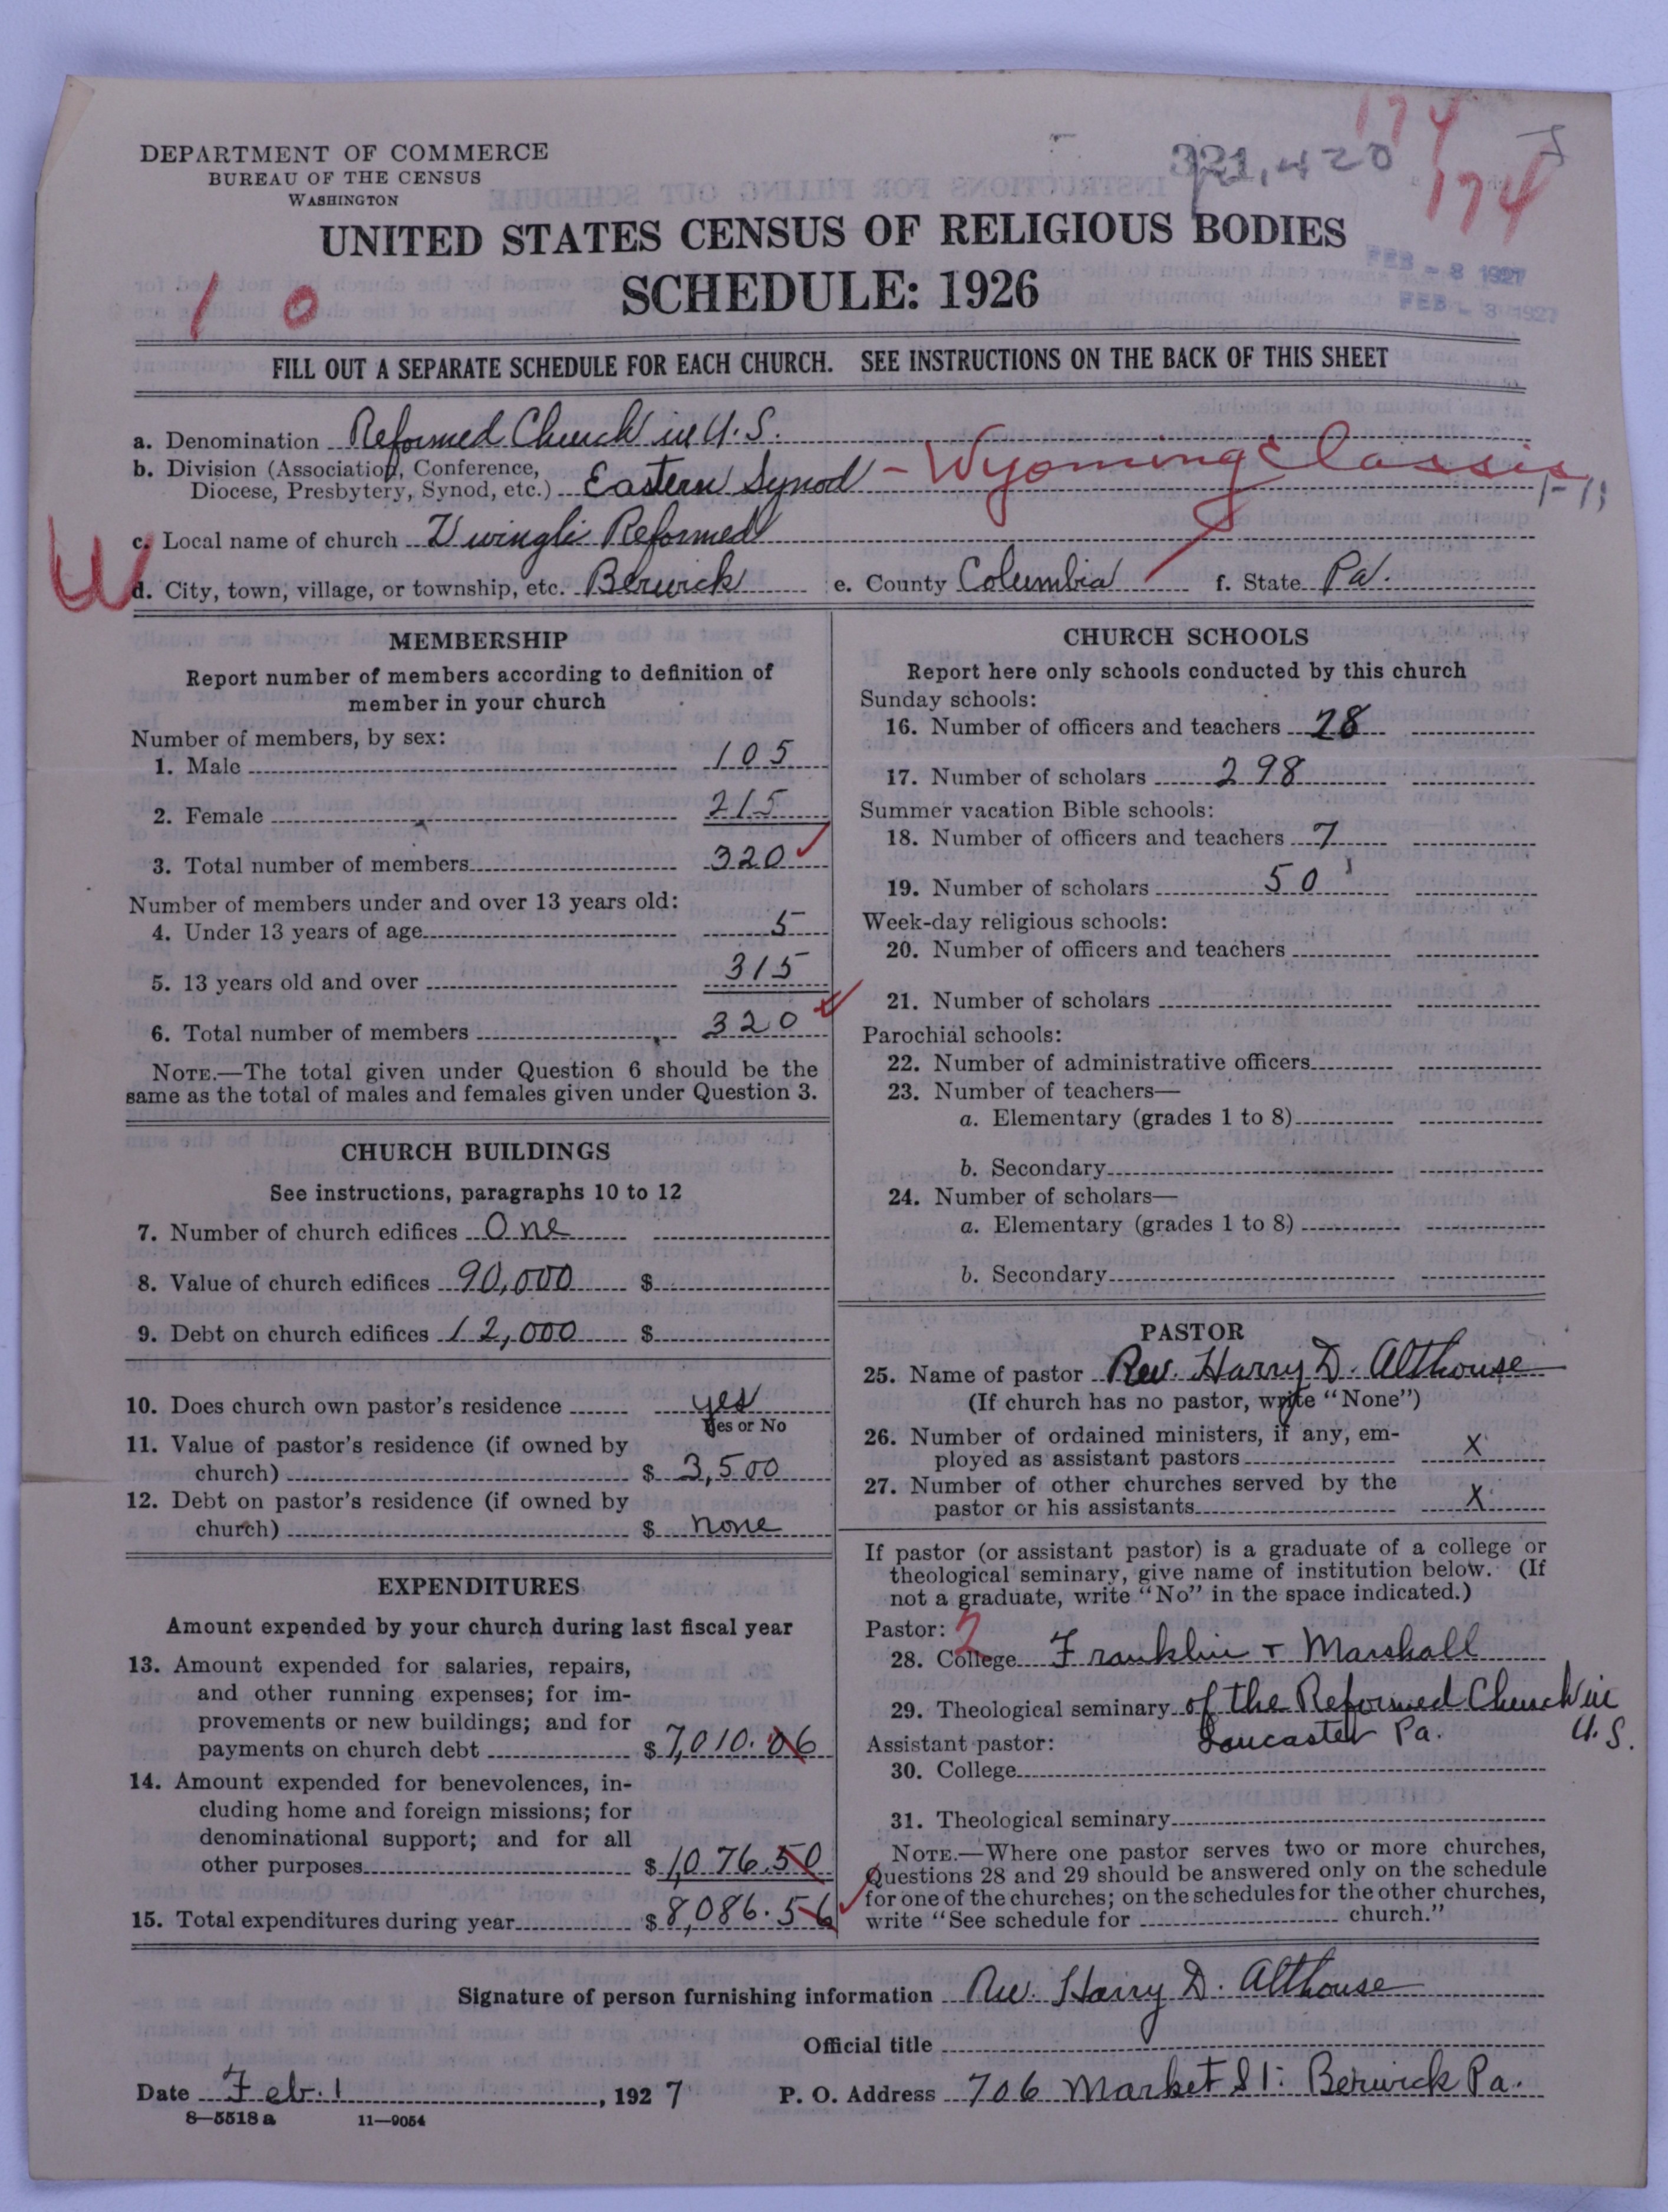 174
321,420
174
DEPARTMENT OF COMMERCE
BUREAU OF THE CENSUS
WASHINGTON
UNITED STATES CENSUS OF RELIGIOUS BODIES
SCHEDULE: 1926
FEB - 3 1927
FEB - 3 1927
1 0
FILL OUT A SEPARATE SCHEDULE FOR EACH CHURCH. SEE INSTRUCTIONS ON THE BACK OF THIS SHEET
a. Denomination Reformed Church in U.S.
b. Division (Association, Conference,
Diocese, Presbytery, Synod, etc.) Eastern Synod - Wyoming Classis
c. Local name of church Zwingli Reformed
d. City, town, village, or township, etc. Berwick e. County Columbia f. State Pa.
MEMBERSHIP
Report number of members according to definition of
member in your church
Number of members, by sex:
1. Male 105
2. Female 215
3. Total number of members 320
Number of members under and over 13 years old:
4. Under 13 years of age 5
5. 13 years old and over 315
6. Total number of members 320
NOTE.—The total given under Question 6 should be the
same as the total of males and females given under Question 3.
CHURCH BUILDINGS
See instructions, paragraphs 10 to 12
7. Number of church edifices One
8. Value of church edifices 90,000 $
9. Debt on church edifices 12,000 $
10. Does church own pastor's residence yes
Yes or No
11. Value of pastor's residence (if owned by
church) $ 3,500
12. Debt on pastor's residence (if owned by
church) $ none
EXPENDITURES
Amount expended by your church during last fiscal year
13. Amount expended for salaries, repairs,
and other running expenses; for im-
provements or new buildings; and for
payments on church debt $ 7,010.06
14. Amount expended for benevolences, in-
cluding home and foreign missions; for
denominational support; and for all
other purposes $ 1,076.50
15. Total expenditures during year $ 8,086.56
CHURCH SCHOOLS
Report here only schools conducted by this church
Sunday schools:
16. Number of officers and teachers 28
17. Number of scholars 298
Summer vacation Bible schools:
18. Number of officers and teachers 7
19. Number of scholars 50
Week-day religious schools:
20. Number of officers and teachers
21. Number of scholars
Parochial schools:
22. Number of administrative officers
23. Number of teachers—
a. Elementary (grades 1 to 8)
b. Secondary
24. Number of scholars—
a. Elementary (grades 1 to 8)
b. Secondary
PASTOR
25. Name of pastor Rev. Harry D. Althouse
(If church has no pastor, write "None")
26. Number of ordained ministers, if any, em-
ployed as assistant pastors X
27. Number of other churches served by the
pastor or his assistants X
If pastor (or assistant pastor) is a graduate of a college or
theological seminary, give name of institution below. (If
not a graduate, write "No" in the space indicated.)
Pastor: 2
28. College Franklin + Marshall
29. Theological seminary of the Reformed Church in
U.S.
Lancaster Pa.
Assistant pastor:
30. College
31. Theological seminary
NOTE.—Where one pastor serves two or more churches,
Questions 28 and 29 should be answered only on the schedule
for one of the churches; on the schedules for the other churches,
write "See schedule for church."
Signature of person furnishing information Rev. Harry D. Althouse
Official title
Date Feb. 1, 1927 P. O. Address 706 Market St. Berwick Pa.
8—5518 a 11—9054